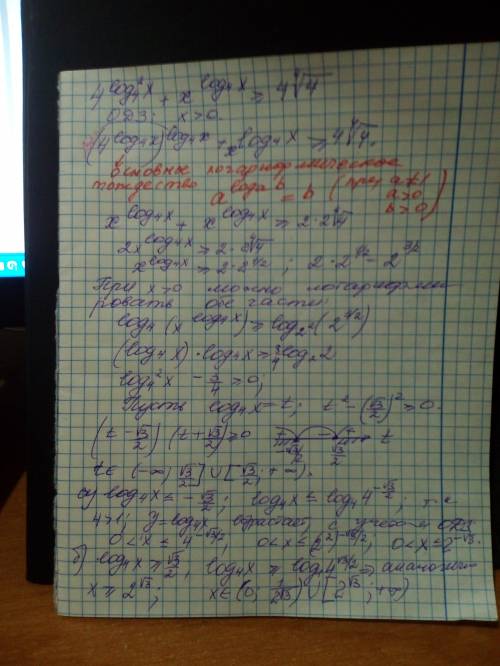 4^{log₄²x} + x^{log₄x} ≥ 4∜4
ОДЗ: x > 0.
(4^{log₄x})^{log₄x} + x^{log₄x} ≥ 4∜4.
Основное логарифмическое
тождество a^{log_a b} = b (при a≠1
a>0
b>0)
x^{log₄x} + x^{log₄x} ≥ 2·2∜4
2x^{log₄x} ≥ 2·2∜4
x^{log₄x} ≥ 2·2^{1/2}; 2·2^{1/2} = 2^{3/2}
При x>0 можно логарифми-
ровать обе части:
log₄(x^{log₄x}) ≥ log_{2²}(2^{3/2})
(log₄x)·log₄x ≥ 3/4 log₂2
log₄²x − 3/4 ≥ 0;
Пусть log₄x = t; t² − (√3/2)² ≥ 0.
(t − √3/2)(t + √3/2) ≥ 0 + − + t
−√3/2 √3/2
t ∈ (−∞; √3/2] ∪ [√3/2; +∞).
a) log₄x ≤ −√3/2; log₄x ≤ log₄4^{−√3/2}; т.к
4>1, y = log₄x возрастает, с учетом ОДЗ
0 < x ≤ 4^{−√3/2}; 0 < x ≤ (2²)^{−√3/2}; 0 < x ≤ 2^{−√3}.
б) log₄x ≥ √3/2, log₄x ≥ log₄4^{√3/2} ⇒ аналогично
x ≥ 2^{√3}; x ∈ (0; 1/2^{√3}] ∪ [2^{√3}; +∞)